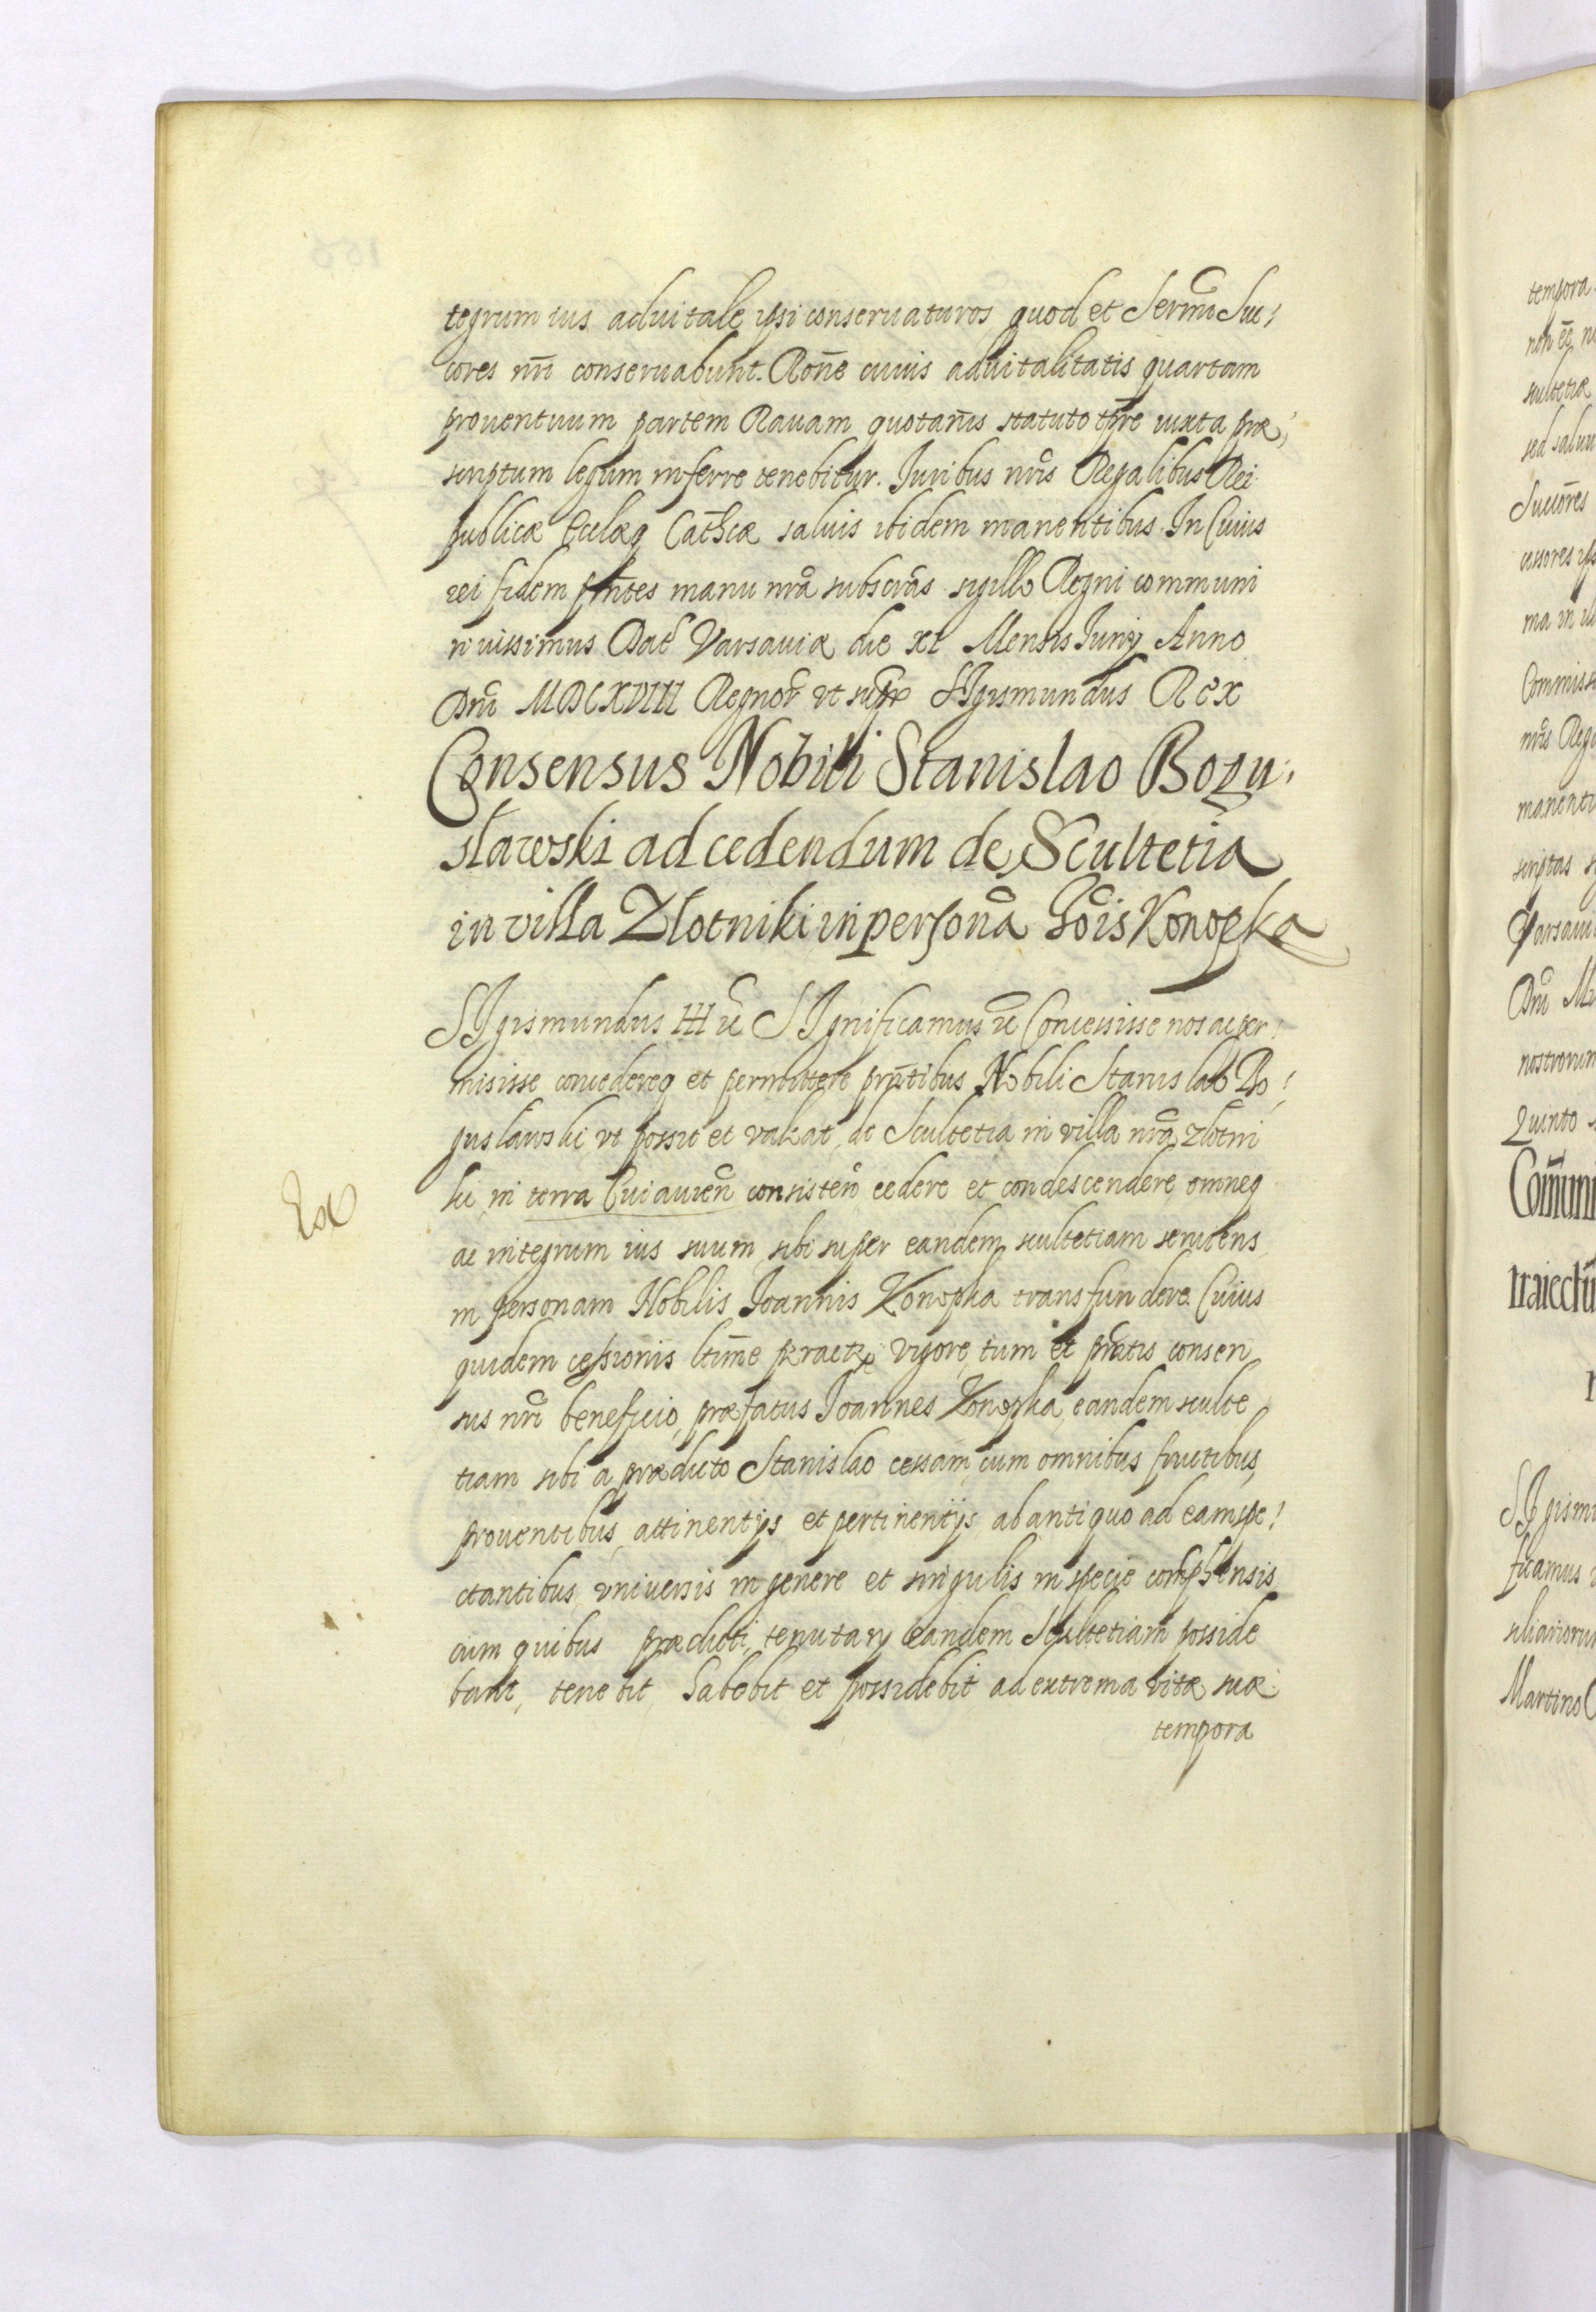 tegrum ius aduitale ipsi conseruaturos quod et Sermi Suc,
cores nri conseruabunt. Rone cuius aduitalitatis quartam
prouentuum partem Rauam quotanis statuto tpre iuxta præ,
scriptum legum inferre tenebitur. Iuribus nris Regalibus Rei
publicæ Eccłæq Cathcæ saluis ibidem manentibus. In Cuius
rei fidem pntes manu nra subscras sigillo Regni communi
ri iussimus Dat Varsauiæ die XI Mensis Iunij Anno
Dni MDCXVIII Regnor ut supr SIgismundus Rex
Consensus Nobili Stanislao Bogu,
sławski ad cedendum de Scultetia
in villa Złotniki in persona Gois Konopka
SIgismundus III etc SIgnificamus etc Concessisse nos ac per,
misisse concedereq et permittere pntibus Nobili Stanislao Bo,
gusławski, vt possit et valeat, de Scultetia in villa nra Złotni
ki, in terra Cuiauien consisten cedere et condescendere, omneq
ac integrum ius suum, sibi super eandem scultetiam seruiens
in personam Nobilis Ioannis Konopka transfundere. Cuius
quidem cessionis ltime peractæ vigore, tum et pntis consen
sus nri beneficio, præfatus Ioannes Konopka, eandem sculte
tiam sibi a prædicto Stanislao cessam, cum omnibus fructibus,
prouentibus attinentijs et pertinentijs ab antiquo ad eam spe,
ctantibus, vniuersis in genere et singulis in specie comphensis
cum quibus prædicti, tenutarij eandem Scultetiam posside
bant, tenebit, habebit et possidebit ad extrema vitæ suæ
tempora
Ex
tempora
scultetiæ
sed saluu
Succores
cessores ips
ma in
Commiss
nris Reg
manenti
scriptas
Varsaui
Dni M
nostrorum
Quinto
Comuni
traiectu
SIgism
ficamus
siliariorum
Martino